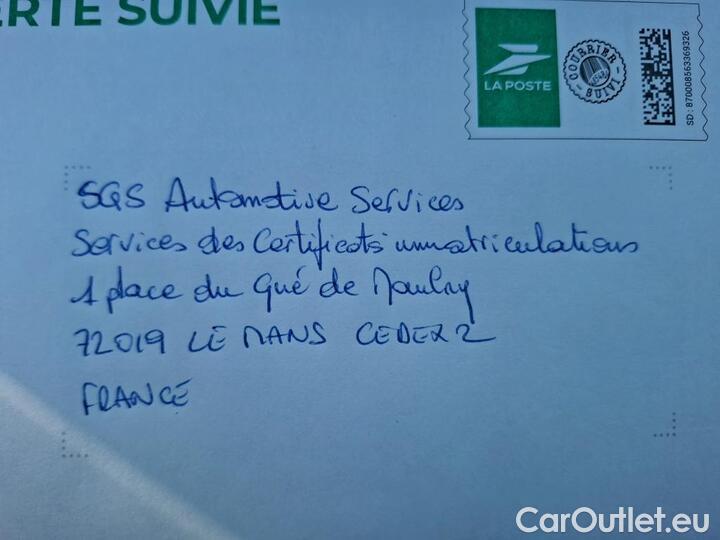 ERTE SUIVIE
LA POSTE
COURRIER SUIVI
SD : 870008563369326
SGS Automotive Services
Services des Certificats immatriculations
1 place du Gué de Maulny
72019 LE MANS CEDEX 2
FRANCE
CarOutlet.eu